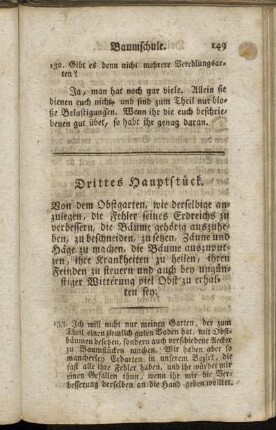 Baumschule. 149
132. Gibt es denn nicht mehrere Veredlungsar-
ten?
Ja, man hat noch gar viele. Allein sie
dienen euch nicht, und sind zum Theil nur blo-
ße Belustigungen. Wenn ihr die euch beschrie-
benen gut übet, so habt ihr genug daran.
Drittes Hauptstück.
Von dem Obstgarten, wie derselbige an-
zulegen, die Fehler seines Erdreichs zu
verbessern, die Bäume gehörig auszuhe-
ben, zu beschneiden, zu setzen, Zäune und
Häge zu machen, die Bäume auszuput-
zen, ihre Krankheiten zu heilen, ihren
Feinden zu steuern und auch bey ungün-
stiger Witterung viel Obst zu erhal-
ten sey.
133. Ich will nicht nur meinen Garten, der zum
Theil einen ziemlich guten Boden hat, mit Obst-
bäumen besetzen, sondern auch verschiedene Aecker
zu Baumstücken machen. Wir haben aber so
mancherley Erdarten in unserem Bezirk, die
fast alle ihre Fehler haben, und ihr würdet mir
einen Gefallen thun, wenn ihr mir die Ver-
besserung derselben an die Hand geben wolltet.